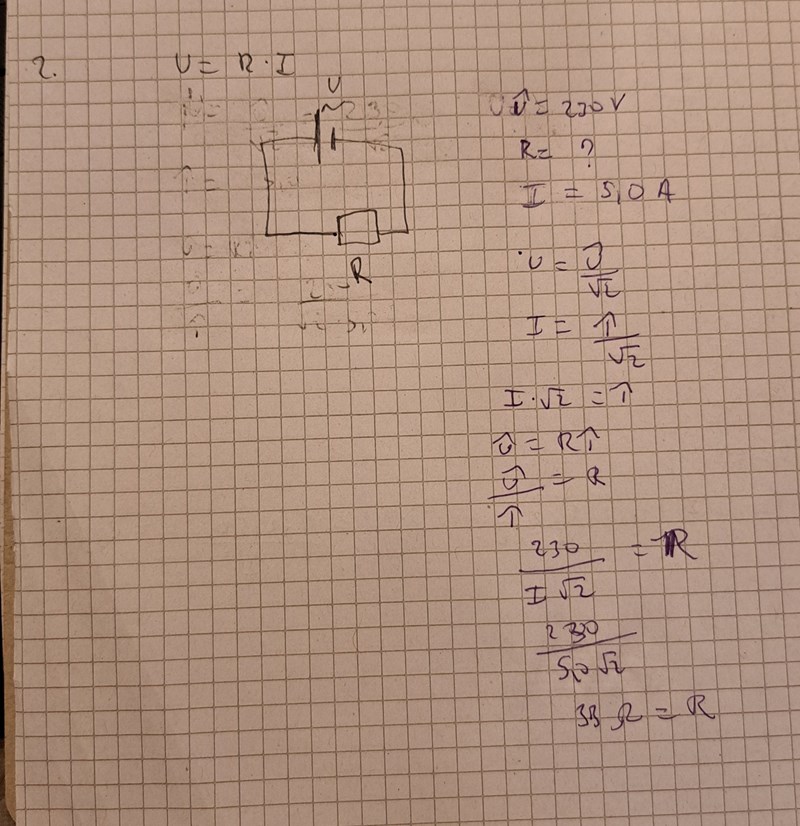 2.
U = R · I
U
~
R
Û = 230 V
R = ?
I = 5,0 A
U = Û/√2
I = Î/√2
I·√2 = Î
Û = RÎ
Û/Î = R
230/I√2 = R
230/5,0√2
33 Ω = R